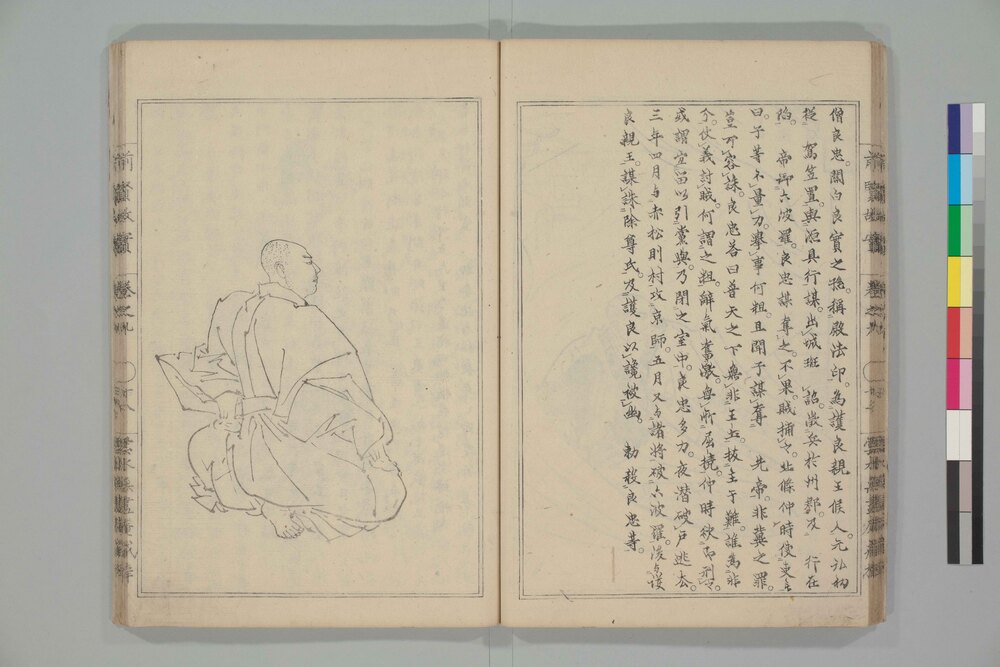 僧良忠。関白良實之孫。稱殿法印。為護良親王候人。元弘初
從　駕笠置。與源具行謀。出城班　詔徵兵於州郡。及　行在
陷。　帝御六波羅。良忠謀奪之。不果。賊捕之。北條仲時使吏
曰。子等不量力。擧事何粗且聞子謀奪　先帝。非冀之罪。
豈可容誅。良忠答曰普天之下無非王土。拔主于難。誰為非
今仗義討賊。何謂之粗。辭氣奮激。毋所屈撓。仲時欲即刑
或謂宜留以引黨與。乃閉之室中。良忠多力。夜潜破戸逃去。
三年四月与赤松則村攻京師。五月又与諸將破六波羅。後与護
良親王。謀誅除尊氏。及護良以讒被幽。　勅殺良忠等。
前賢故實